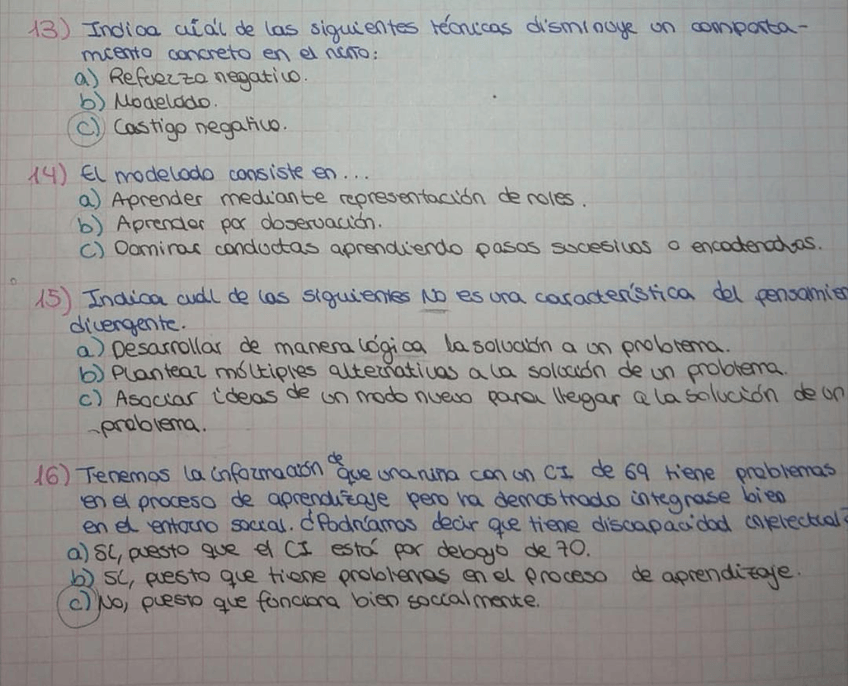 13) Indica cuál de las siguientes técnicas disminuye un comporta-
miento concreto en el niño:
a) Refuerzo negativo.
b) Modelado.
c) Castigo negativo.
14) El modelado consiste en...
a) Aprender mediante representación de roles.
b) Aprender por observación.
c) Dominar conductas aprendiendo pasos sucesivos o encadenados.
15) Indica cuál de las siguientes NO es una característica del pensamien
divergente.
a) Desarrollar de manera lógica la solución a un problema.
b) Plantear múltiples alternativas a la solución de un problema.
c) Asociar ideas de un modo nuevo para llegar a la solución de un
problema.
16) Tenemos la información de que una niña con un CI de 69 tiene problemas
en el proceso de aprendizaje pero ha demostrado integrase bien
en el entorno social. ¿Podríamos decir que tiene discapacidad intelectual?
a) Sí, puesto que el CI está por debajo de 70.
b) Sí, puesto que tiene problemas en el proceso de aprendizaje.
c) No, puesto que funciona bien socialmente.